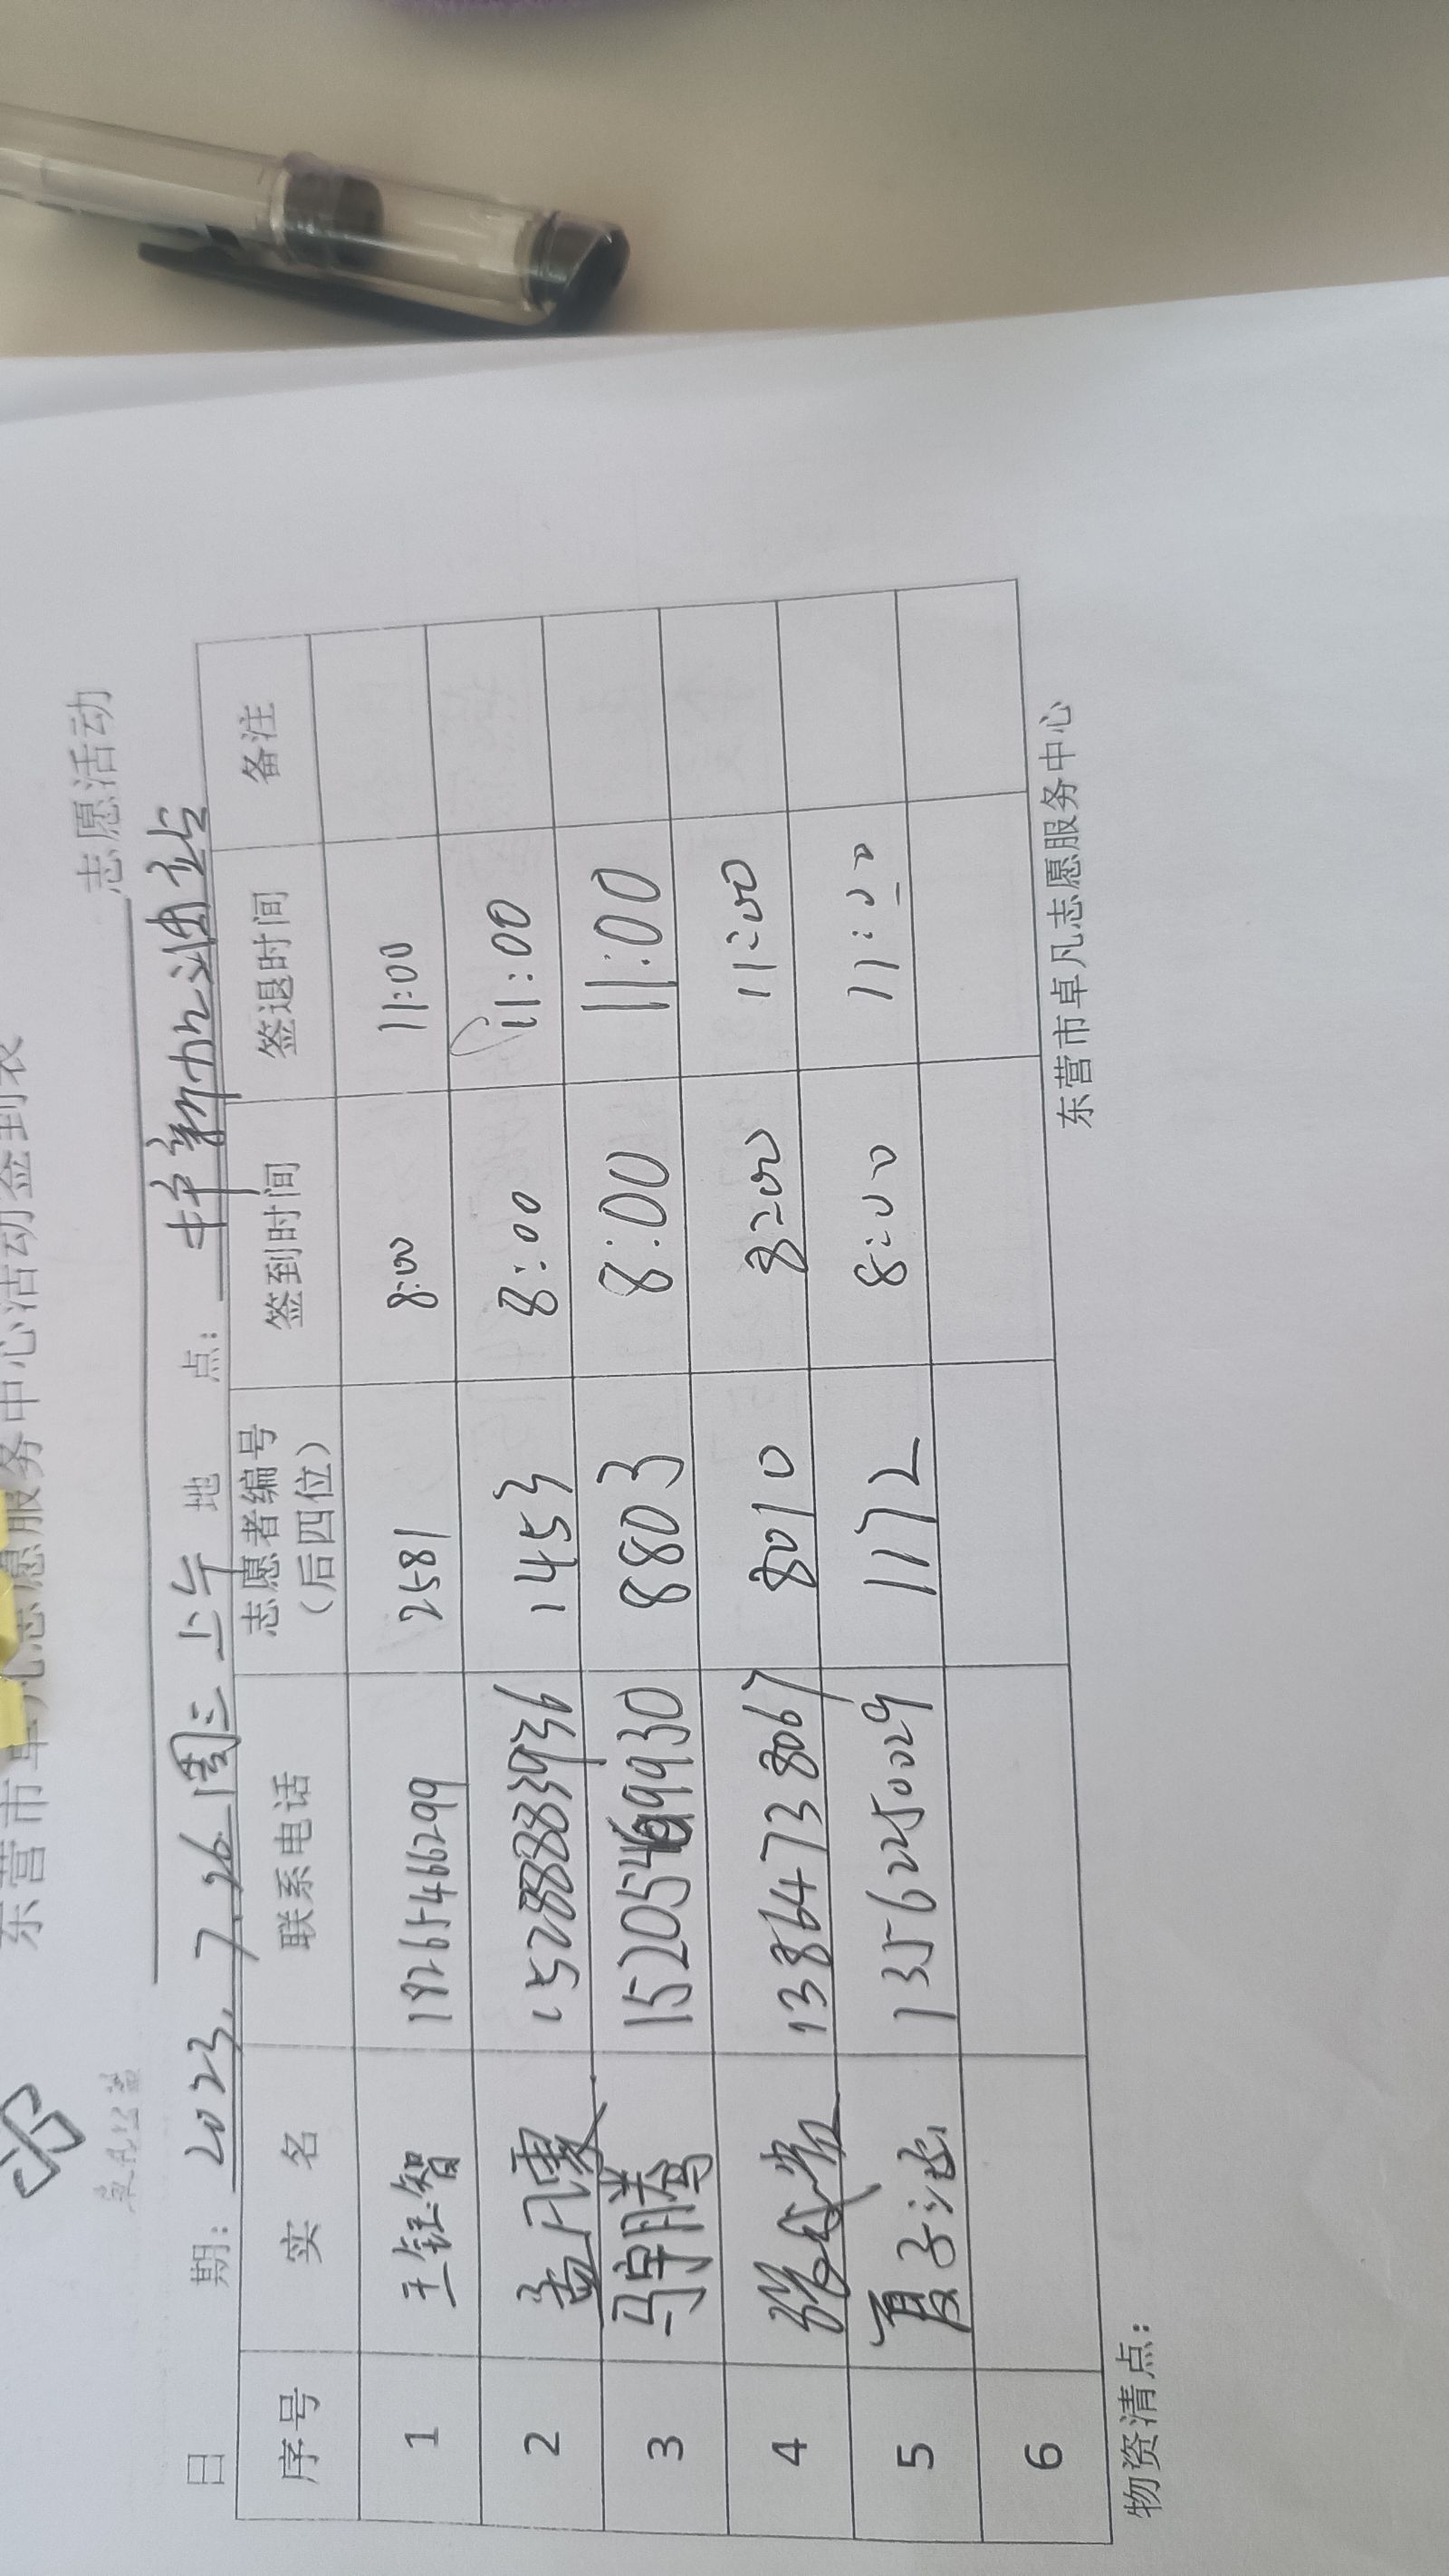 东营市卓凡志愿服务中心活动签到表
志愿活动
日 期: 2023.7.26 周三上午 地 点: 中新加油站
序号 实 名 联系电话 志愿者编号（后四位） 签到时间 签退时间 备注
1 王钰智 18265466299 2581 8:00 11:00
2 孟凡震 15288883936 1453 8:00 11:00
3 马宇腾 8803 8:00 11:00
4 13864738067 8010 8:00 11:00
5 夏子涵 13562250029 1172 8:00 11:00
6
物资清点: 东营市卓凡志愿服务中心